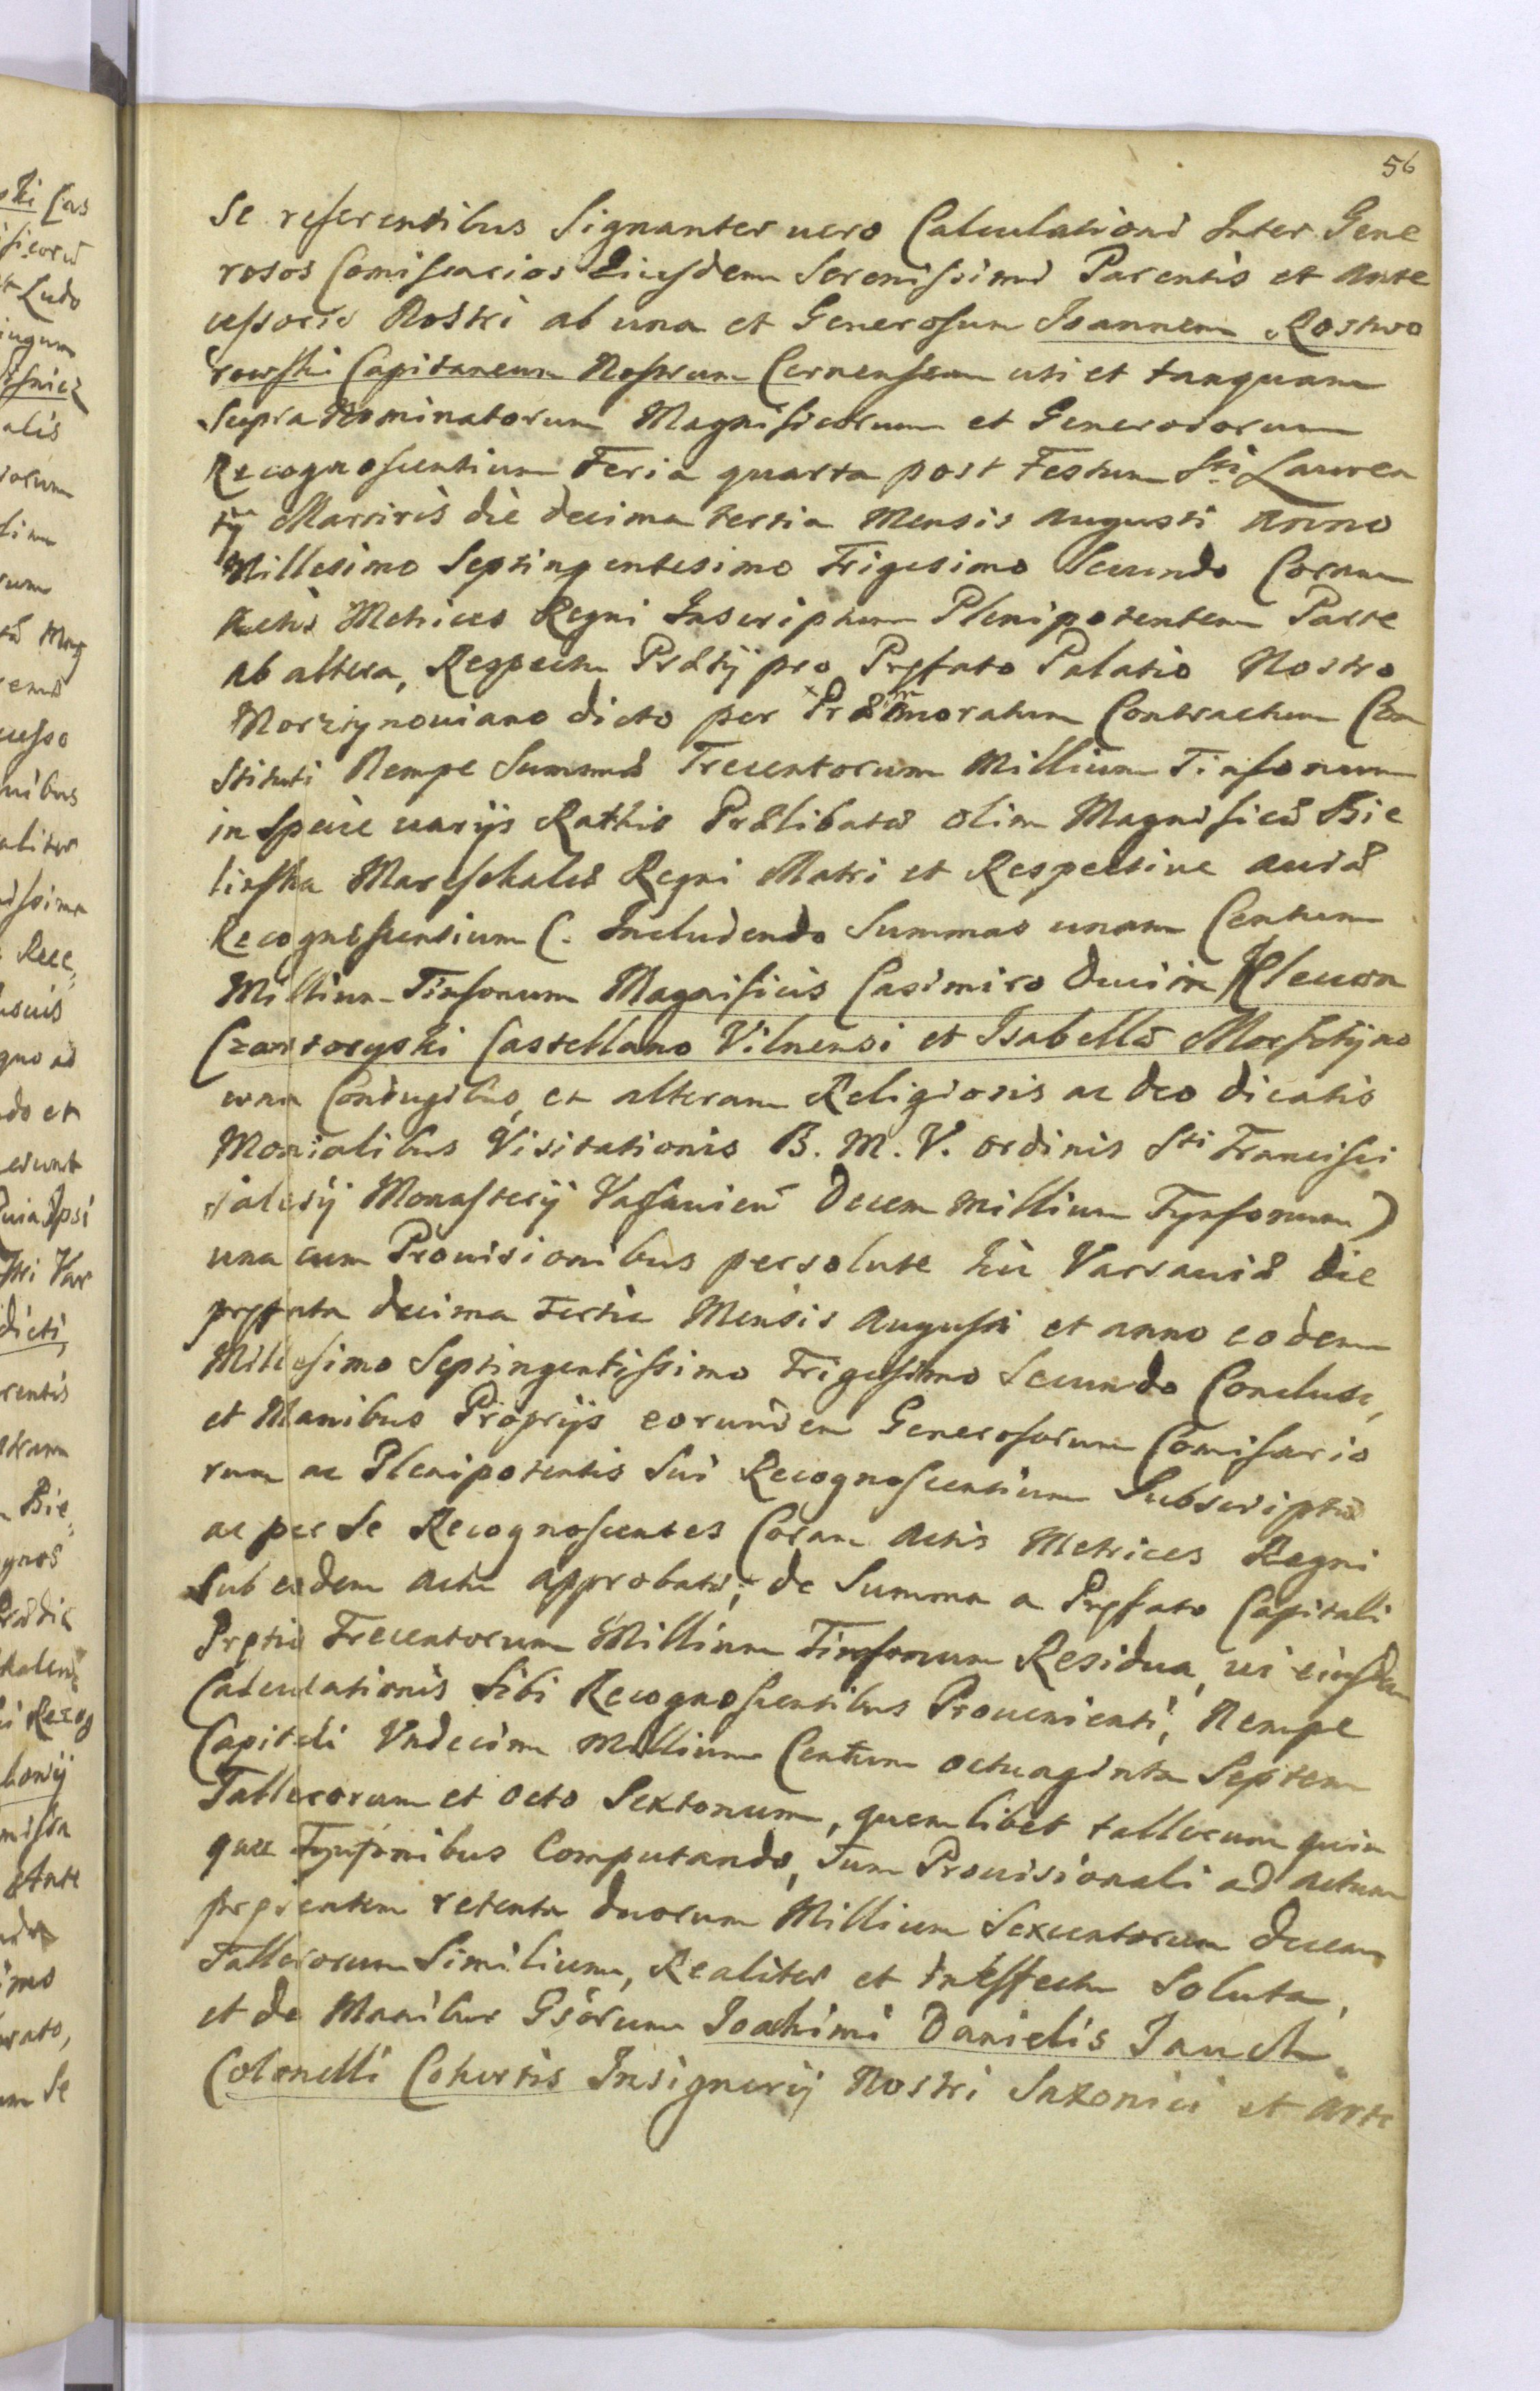 56
Se referentibus Signanter uero Calculationi Inter Gene
rosos Comissarios Eiusdem Serenissimi Parentis et Ante
cessoris Nostri ab una et Generosum Joannem Rostwo
rowski Capitaneum Nostrum Cernensem uti et tanquam
Supra Nominatorum Magnificorum et Generosorum
Recognoscentium Feria quarta post Festum Sti Lauren
tij Martiris die decima tertia Mensis Augusti Anno
Millesimo Septingentesimo Trigesimo Secundo Coram
Actis Metrices Regni Inscriptum Plenipotentem Parte
ab altera, Respectu Prætij pro Pręfato Palatio Nostro
Morztynoviano dicto per Præmoratum Contractum Con
stituti Nempe Summæ Trecentorum Millium Tinfonum
in Specie varijs Rathis Prælibatæ olim Magnificæ Bie
linska Mareschalcæ Regni Matri et Respective Aviæ
Recognoscentium (. Includendo Summas unam Centum
Millium Tinfonum Magnificis Casimiro Duci in Klewan
Czartoryski Castellano Vilnensi et Isabellæ Morsztyno
wna Coniugibus, et alteram Religiosis ac Deo dicatis
Monialibus Visitationis B. M. V. ordinis Sti Francisci
Salesij Monasterij Varsavien̄ Decem Millium Tynfonum)
una cum Provisionibus persolutæ hic Varsaviæ die
pręfata decima Tertia Mensis Augusti et anno eodem
Millesimo Septingentissimo Trigesimo Secundo Conclusæ,
et Manibus Proprijs eorundem Generosorum Comissario
rum ac Plenipotentis Sui Recognoscentium Subscriptæ
ac per Se Recognoscentes Coram Actis Metrices Regni
Sub eodem Actu approbatæ; de Summa a Pręfato Capitali
Prętio Trecentorum Millium Tinfonum Residua, vi eiusdem
Calculationis Sibi Recognoscentibus Provenienti, Nempe
Capitali Vndecim Millium Centum octuaginta Septem
Tallerorum et octo Sextonum, quemlibet tallerum quin
que Tynfonibus Computando, Tum Provisionali ad Actum
pręsentem retenta duorum Millium Sexcentorum decem
Tallerorum Similium, Realiter et in effectu Soluta,
et de Manibus Gsorum Joachimi Danielis Jauch
Colonelli Cohortis Insignerij Nostri Saxonici et Arte